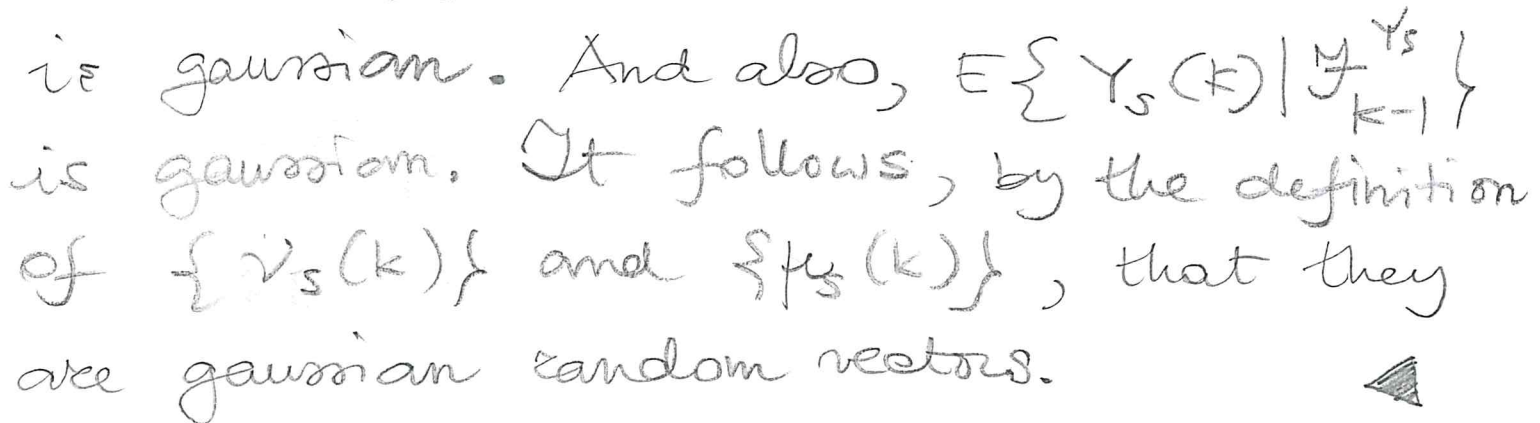 is gaussian. And also, E{ Y_s (k) | ℱ_{k-1}^{Y_s} }
is gaussian. It follows, by the definition
of { ν_s (k) } and { μ_s (k) }, that they
are gaussian random vectors. ◀